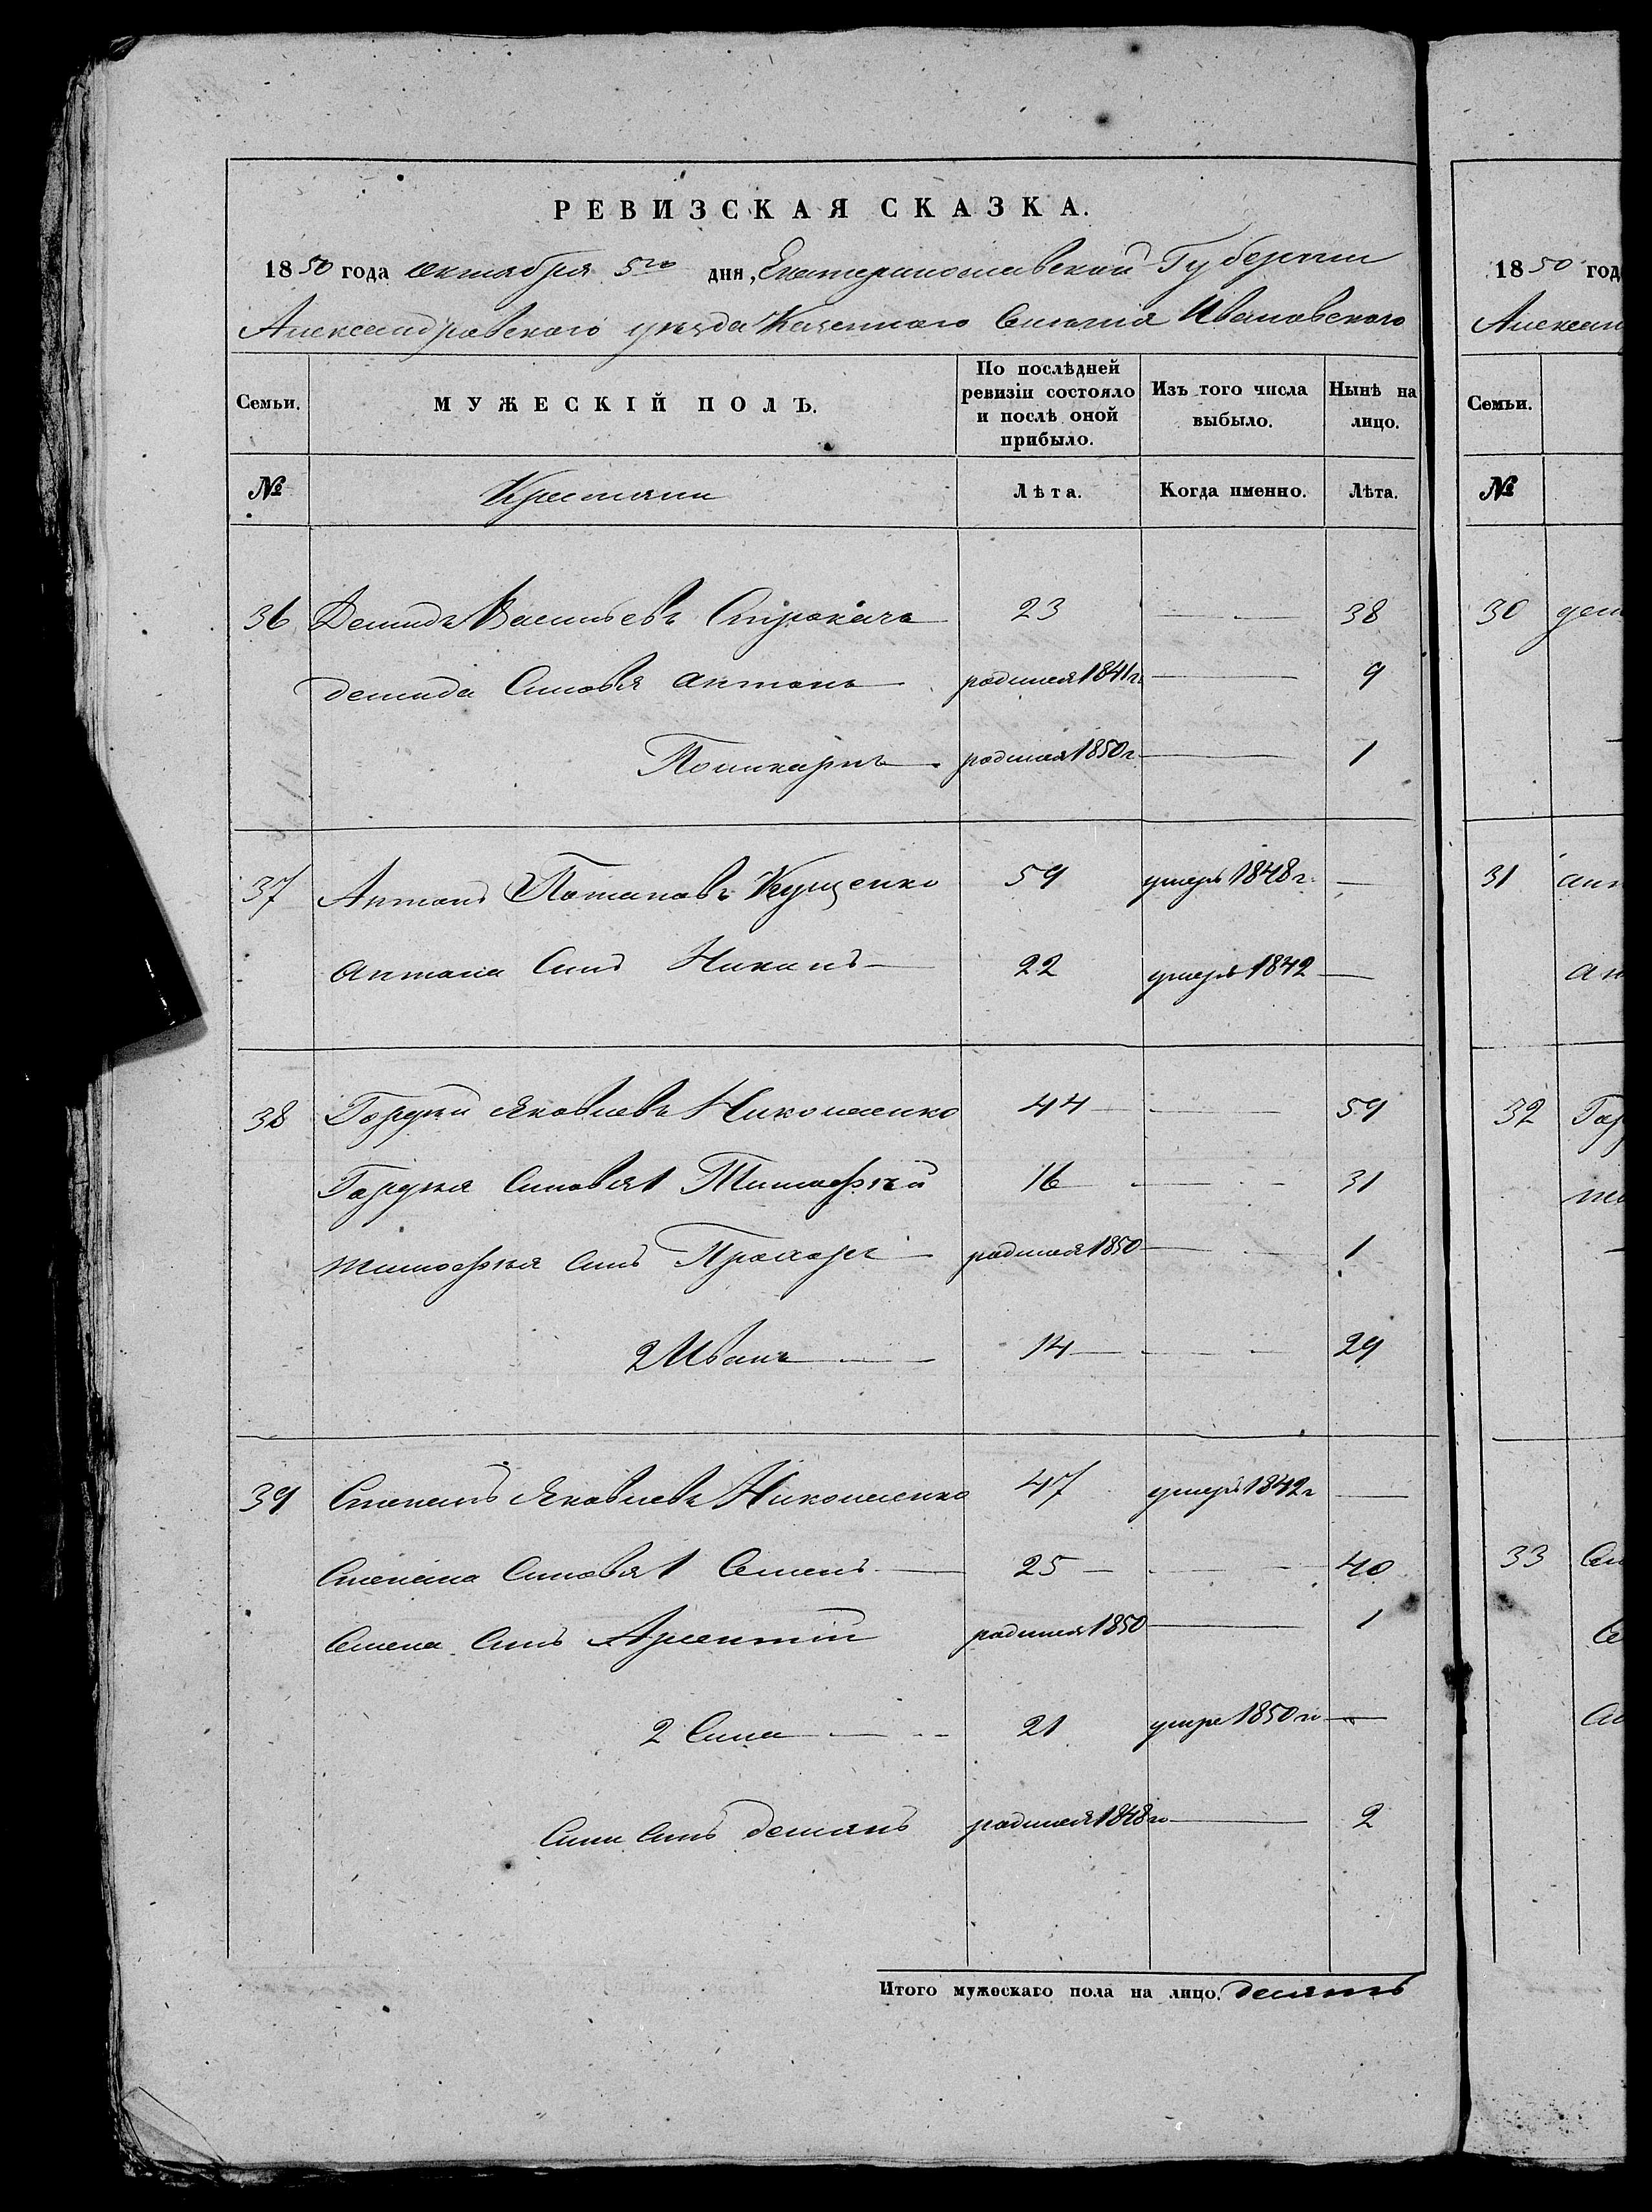 РЕВИЗСКАЯ СКАЗКА.
1850 года Октября 5го дня, Екатеринославской Губернии
Александровского уезда Казенного Селения Ивановского
Семьи. МУЖЕСКІЙ ПОЛЪ. По послѣдней ревизіи состояло и послѣ оной прибыло. Изъ того числа выбыло. Нынѣ на лицо.
№ Крестяни Лѣта. Когда именно. Лѣта.
36 Демидъ Васильевъ Строкачъ 23 — — 38
демида Сыновя антонъ родился 1841г. — 9
Поликарпъ родился 1850г. — 1
37 Антонъ Потаповъ Кущенко 59 умеръ 1848г. —
антона Сынъ 22 умеръ 1842 —
38 Гордей Яковлевъ Николаенко 44 — — 59
Гордея Сыновя 1 Тимофѣй 16 — — 31
тимофѣя Сынъ Прохоръ родился 1850 — — 1
2 Иванъ 14 — — 29
39 Степанъ Яковлевъ Николаенко 47 умеръ 1842г —
Степана Сыновя 1 Семенъ 25 — — 40
Семена Сынъ Арсентий родился 1850 — 1
2 Сила 21 умре 1850го —
Сили Сынъ демянъ родился 1848го — 2
Итого мужескаго пола на лицо. десять
1850 год
Александ
Семьи.
№
30 дем
31 ант
ан
32 Гор
33